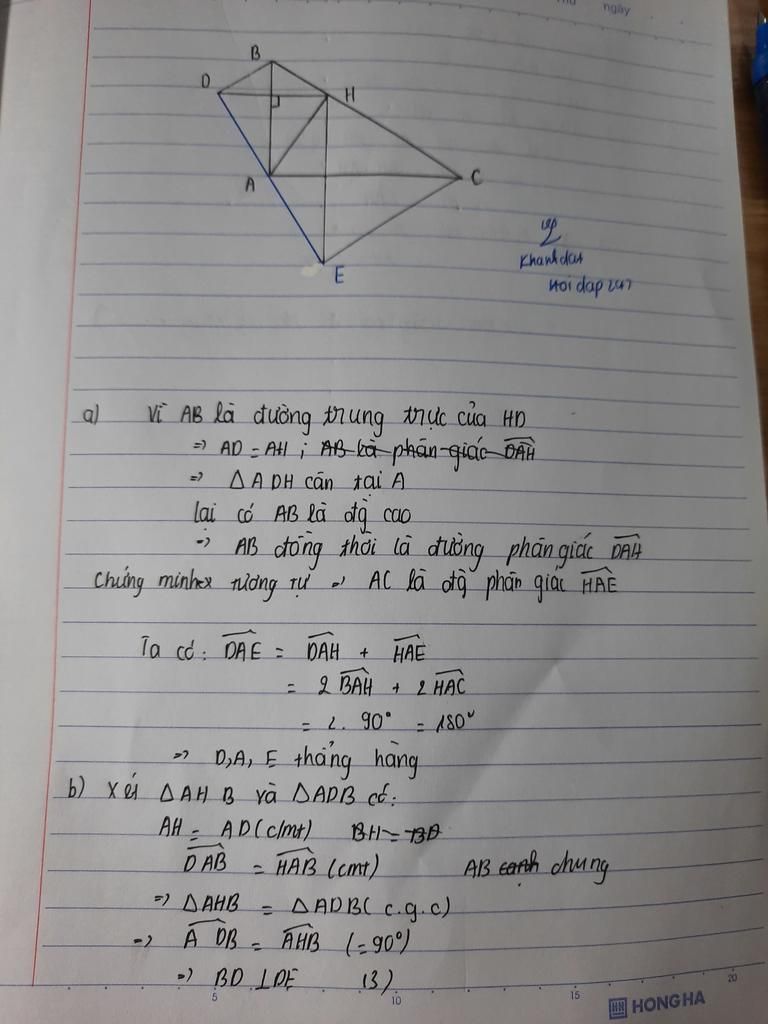 ngày
B
D
H
A
C
E
Khanhdat
Hoidap247
a) Vì AB là đường trung trực của HD
=> AD = AH ; AB là phân giác DAH
=> △ADH cân tại A
lại có AB là đg cao
=> AB đồng thời là đường phân giác DAH
Chứng minh tương tự => AC là đg phân giác HAE
Ta có: DAE = DAH + HAE
= 2 BAH + 2 HAC
= 2. 90° = 180°
=> D,A, E thẳng hàng
b) Xét △AHB và △ADB có:
AH = AD (cmt) BH = BD
DAB = HAB (cmt) AB cạnh chung
=> △AHB = △ADB( c.g.c)
=> ADB = AHB (=90°)
=> BD ⊥ DE (3)
5 10 15 20
HONG HA